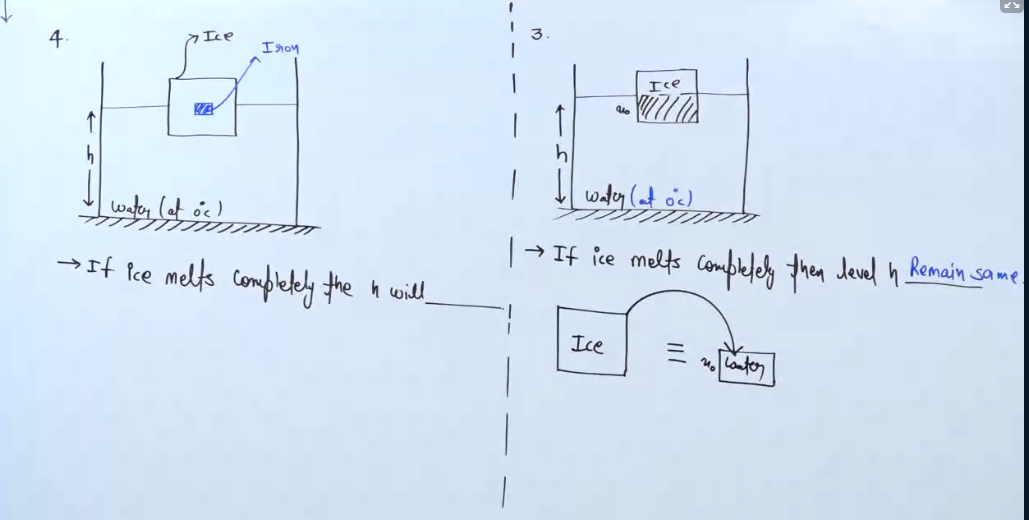 4.
Ice
Iron
h
water (at 0°c)
→ If ice melts completely the h will ______
3.
Ice
h
water (at 0°c)
→ If ice melts completely then level h Remain same.
Ice
≡
water